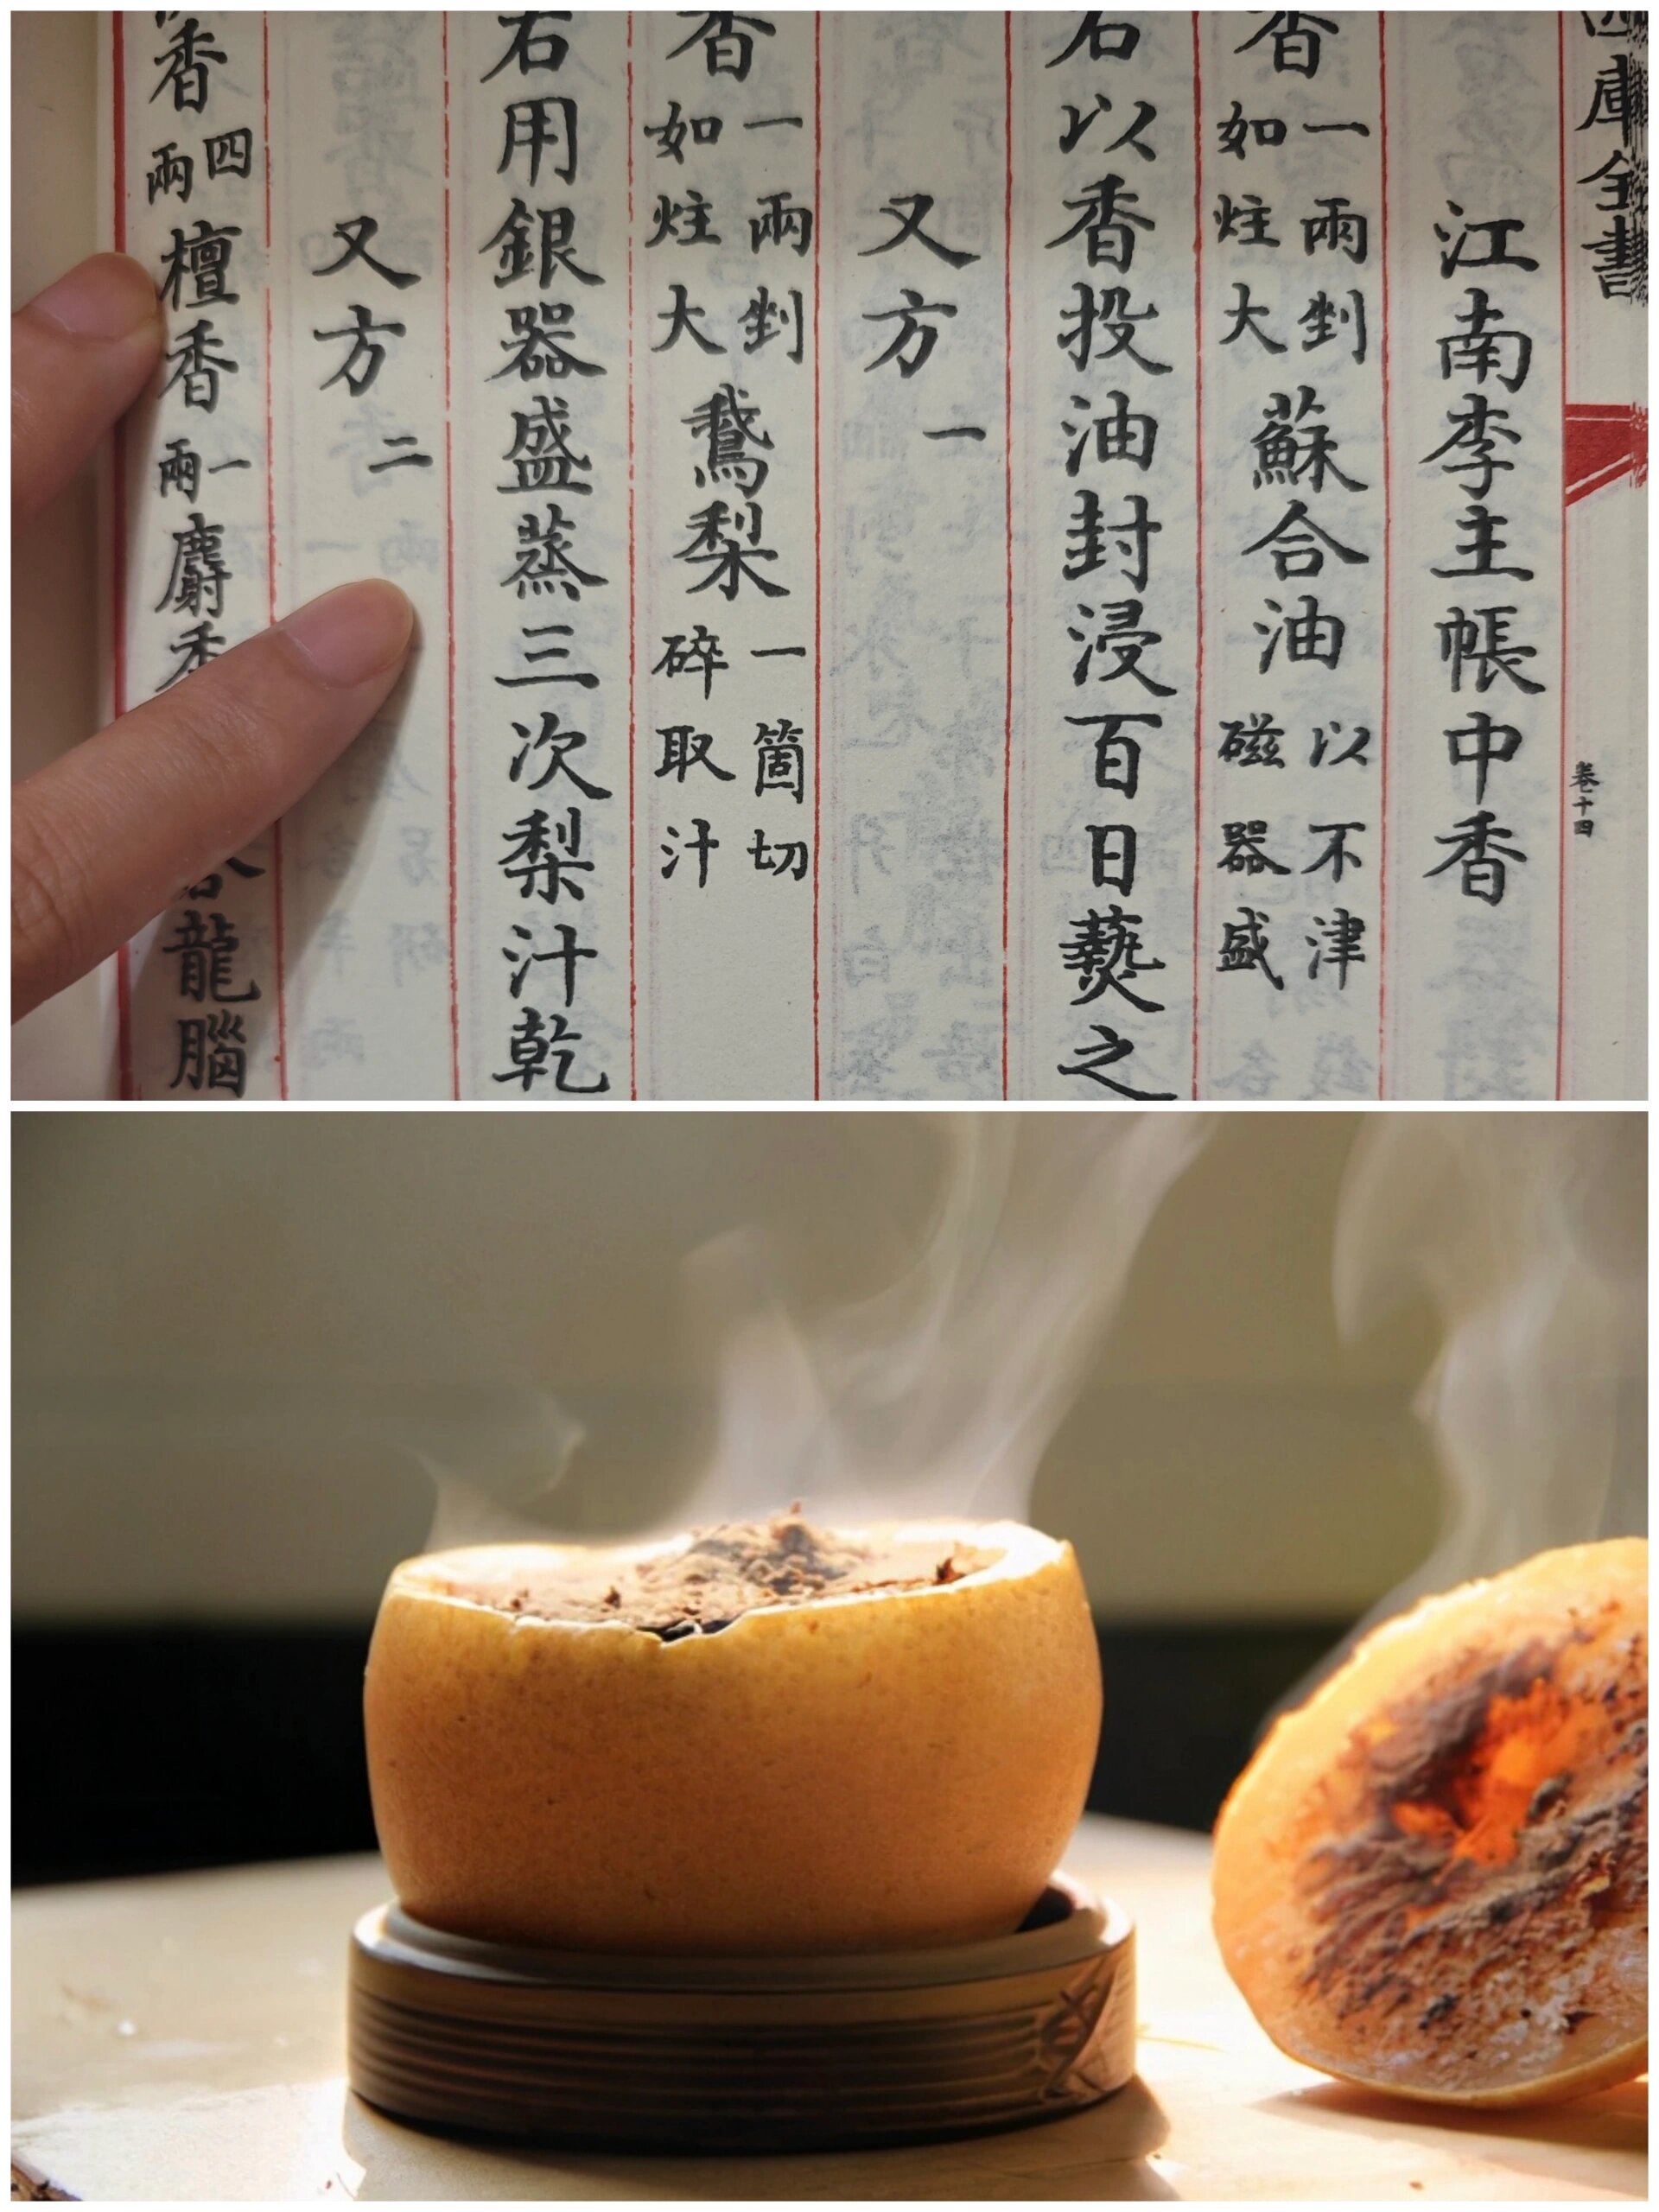 四庫全書
卷十四
江南李主帳中香
香一兩剉如炷大蘇合油以不津磁器盛
右以香投油封浸百日爇之
又方一
香一兩剉如炷大鵞梨一箇切碎取汁
右用銀器盛蒸三次梨汁乾
又方二
香四兩檀香一兩麝香龍腦